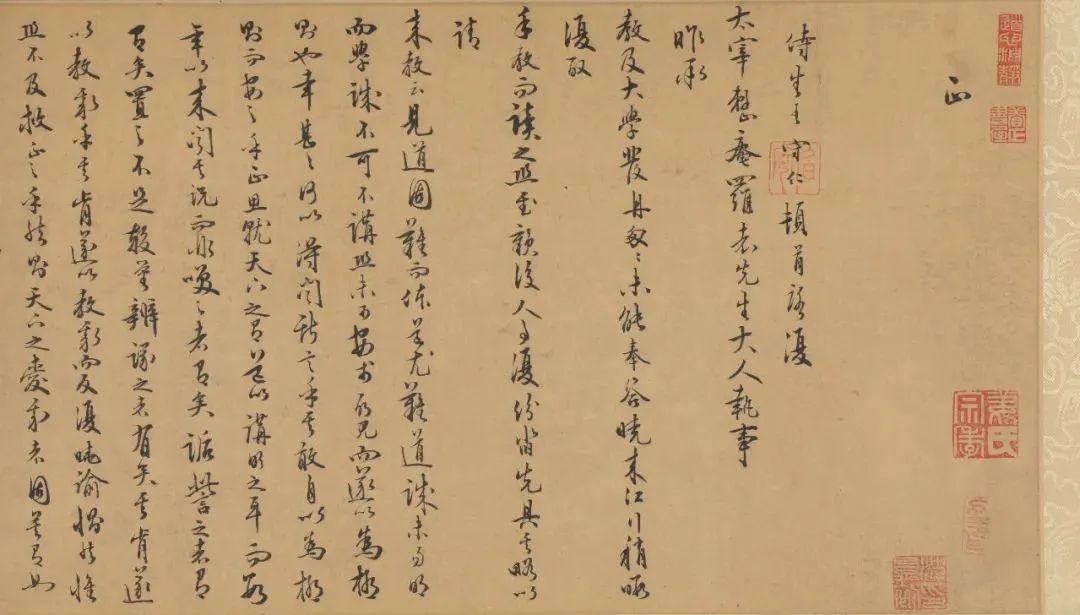 正
侍生王守仁頓首啓復
太宰整庵羅老先生大人執事
昨承
教及大學發舟匆匆未能奉答曉來江行稍暇
復取
手教而讀之恐至贛後人事復紛沓先具其略以
請
來教云見道固難而體道尤難道誠未易明
而學誠不可不講恐未可安於所見而遂以為極
則也幸甚幸甚何以得聞斯言乎其敢自以為極
則而安之乎正思就天下之有道以講明之耳而數
年以來聞其說而非笑之者有矣詬訾之者有
矣置之不足較量辨議之者有矣其肯遂
以教我乎其肯遂以教我而反復曉諭惻然惟
恐不及救正之乎然則天下之愛我者固莫有如